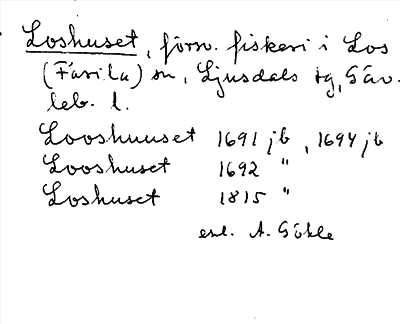 Loshuset, försv. fiskeri i Los
(Färila) sn, Ljusdals tg, Gäv-
leb. l.
Looshuuset 1691 jb, 1694 jb
Looshuset 1692 "
Loshuset 1815 "
enl. A. Göhle